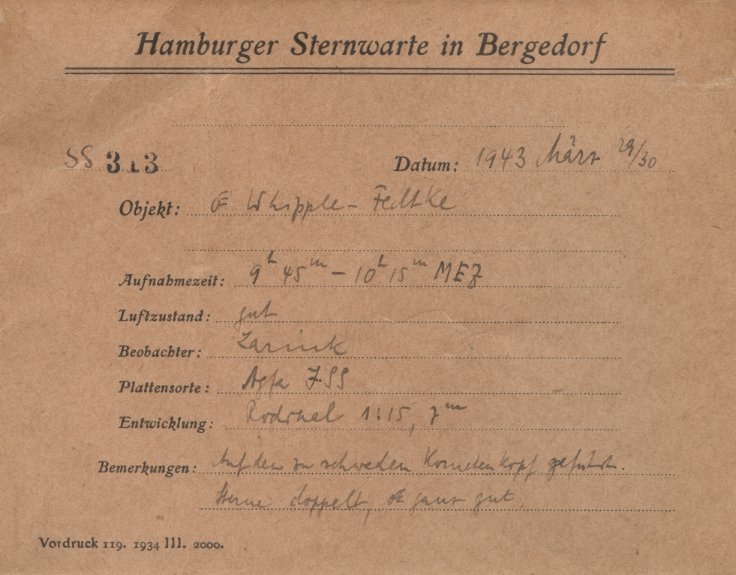 Hamburger Sternwarte in Bergedorf
SS 313 Datum: 1943 März 29/30
Objekt: ☄ Whipple-Fedtke
Aufnahmezeit: 9h 45m – 10h 15m MEZ
Luftzustand: gut
Beobachter:
Plattensorte: Agfa ISS
Entwicklung: Rodinal 1:15, 7m
Bemerkungen: Auf den zu schwachen Kometenkopf geführt.
Sterne doppelt, ☄ ganz gut.
Vordruck 119. 1934 III. 2000.